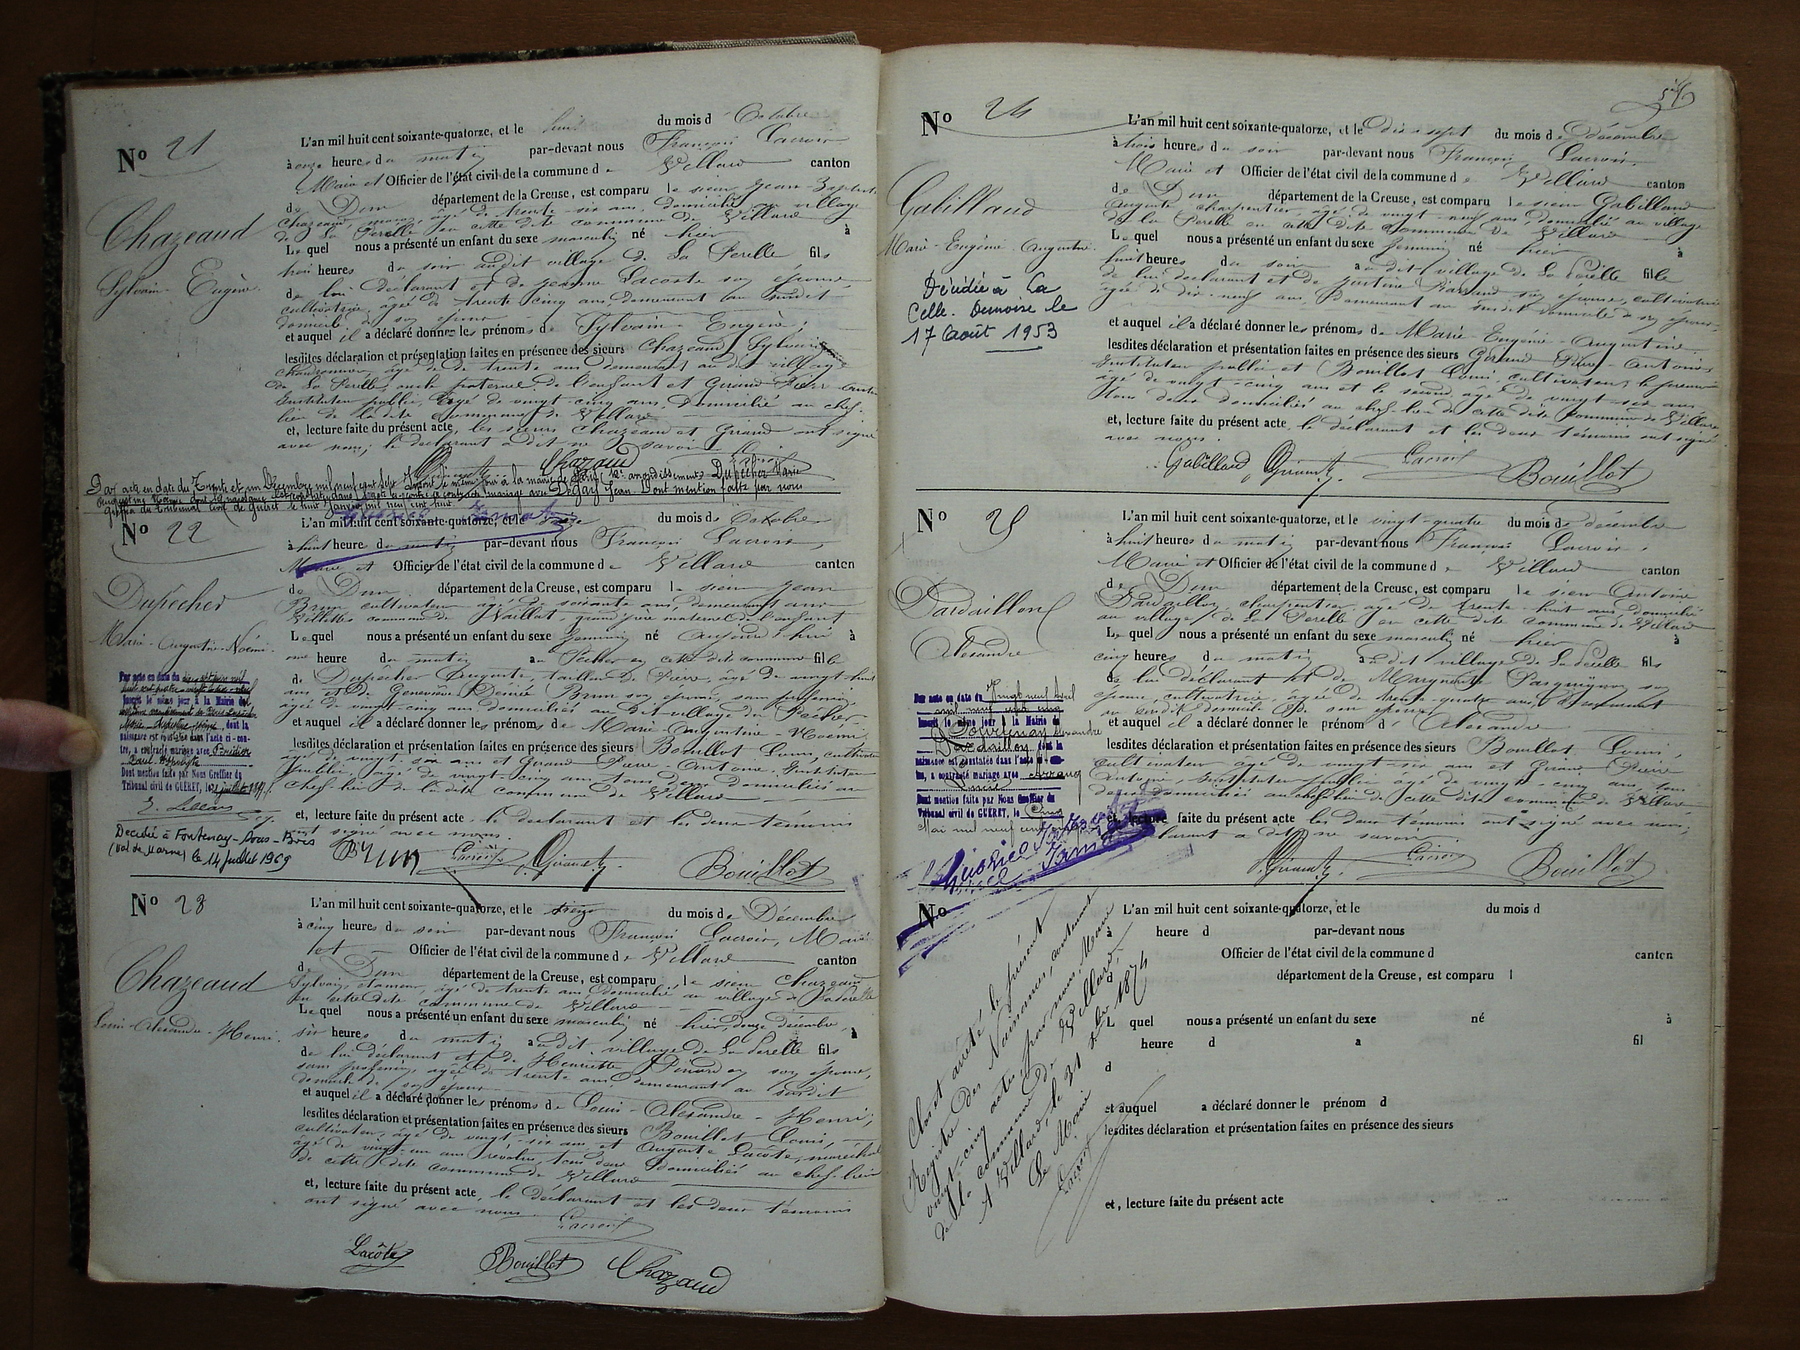 Nº 21
Chazeaud
Sylvain Eugène
L'an mil huit cent soixante-quatorze, et le huit du mois d Octobre
à onze heures du matin par-devant nous François Lacroix
Maire et Officier de l'état civil de la commune de Villard canton
de Dun département de la Creuse, est comparu le sieur Jean-Baptiste
Chazeaud maçon, âgé de trente-six ans, domicilié au village
de La Perelle en cette dite commune de Villard
Lequel nous a présenté un enfant du sexe masculin né hier à
trois heures du soir audit village de La Perelle fils
de lui déclarant et de Jeanne Lacoste son épouse,
cultivatrice, âgée de trente cinq ans demeurant au susdit
domicile de son époux
et auquel il a déclaré donner les prénoms de Sylvain-Eugène,
lesdites déclaration et présentation faites en présence des sieurs Chazeaud Sylvain
âgé de trente ans demeurant au dit village
de La Perelle, oncle paternel de l'enfant et Giraud Pierre Antoine
Instituteur public, âgé de vingt-cinq ans, domicilié au chef-
lieu de la dite commune de Villard
et, lecture faite du présent acte, les sieurs Chazeaud et Giraud ont signé
avec nous; le déclarant a dit ne savoir
Giraud Chazaud Lacroix
Par acte en date du Trente et un Décembre mil neuf cent sept inscrit le même jour à la mairie de Paris 12e arrondissement Dupêcher Marie
Augustine Noémie dont la naissance est constatée dans l'acte ci-contre a contracté mariage avec Degay Jean. Dont mention faite par nous
Greffier du Tribunal Civil de Guéret le huit Janvier mil neuf cent huit
Nº 22
Dupêcher
Marie-Augustine-Noémie
L'an mil huit cent soixante-quatorze, et le du mois d Octobre
à huit heure du matin par-devant nous François Lacroix,
Maire et Officier de l'état civil de la commune de Villard canton
de Dun département de la Creuse, est comparu le sieur Jean
Brun cultivateur âgé de soixante ans, demeurant aux
Villettes commune de Naillat, grand père maternel de l'enfant
Lequel nous a présenté un enfant du sexe féminin né aujourd'hui à
une heure du matin au Pêcher en cette dite commune fille
de Dupêcher Auguste, tailleur de Pierre, âgé de vingt huit
ans, et de Geneviève Denise Brun son épouse, sans profession
âgée de vingt-cinq ans domiciliés au dit village du Pêcher
et auquel il a déclaré donner les prénoms de Marie-Augustine-Noémi
lesdites déclaration et présentation faites en présence des sieurs Bouillot Louis, cultivateur
âgé de vingt six ans et Giraud Pierre-Antoine, Instituteur
public, âgé de vingt-cinq ans tous deux domiciliés au
chef-lieu de la dite commune de Villard
et, lecture faite du présent acte le déclarant et les deux témoins
ont signé avec nous.
Brun Lacroix Giraud Bouillot
Par acte en date du
Inscrit le même jour à la Mairie
dont la
naissance est constatée dans l'acte ci-con-
tre, a contracté mariage avec
Paul Hippolyte
Dont mention faite par Nous Greffier du
Tribunal civil de GUÉRET, le
Decédée à Fontenay-Sous-Bois
(Val de Marne) le 14 juillet 1969
Nº 23
Chazeaud
Louis-Alexandre-Henri
L'an mil huit cent soixante-quatorze, et le treize du mois de Décembre
à cinq heures du soir par-devant nous François Lacroix, Maire
et Officier de l'état civil de la commune de Villard canton
d Dun département de la Creuse, est comparu le sieur Chazeaud
Sylvain, âgé de trente ans domicilié au village de La Perelle
en cette dite commune de Villard
Lequel nous a présenté un enfant du sexe masculin né hier, douze décembre, à
six heures du matin audit village de La Perelle fils
de lui déclarant et de Henriette son épouse,
sans profession, âgée de trente ans, demeurant au susdit
domicile de son époux
et auquel il a déclaré donner les prénoms de Louis-Alexandre-Henri,
lesdites déclaration et présentation faites en présence des sieurs Bouillot Louis,
cultivateur, âgé de vingt-six ans et Auguste Lacôte, maréchal
âgé de vingt-un ans révolus, tous deux domiciliés au chef-lieu
de cette dite commune de Villard
et, lecture faite du présent acte, le déclarant et les deux témoins
ont signé avec nous. Lacroix
Lacôte Bouillot Chazaud
Nº 24
Gabillaud
Marie-Eugénie Augustine
Décédée à La
Celle-Dunoise le
17 Août 1953
L'an mil huit cent soixante-quatorze, et le dix sept du mois de décembre
à trois heures du soir par-devant nous François Lacroix
Maire et Officier de l'état civil de la commune de Villard canton
de Dun département de la Creuse, est comparu le sieur Gabillaud
Auguste charpentier, âgé de vingt-neuf ans domicilié au village
de La Perelle en cette dite commune de Villard
Lequel nous a présenté un enfant du sexe féminin né hier à
huit heures du soir au dit village de La Perelle fille
de lui déclarant et de Justine son épouse, cultivatrice
âgée de dix-neuf ans, demeurant au susdit domicile de son époux
et auquel il a déclaré donner les prénoms de Marie Eugénie-Augustine
lesdites déclaration et présentation faites en présence des sieurs Giraud Pierre-Antoine
Instituteur public et Bouillot Louis, cultivateur, le premier
âgé de vingt-cinq ans et le second âgé de vingt-six ans
tous deux domiciliés au chef-lieu de cette dite commune de Villard
et, lecture faite du présent acte, le déclarant et les deux témoins ont signé
avec nous.
Gabillaud Giraud Lacroix Bouillot
Nº 25
Dardaillon
Alexandre
L'an mil huit cent soixante-quatorze, et le vingt-quatre du mois de décembre
à huit heures du matin par-devant nous François Lacroix,
Maire et Officier de l'état civil de la commune d Villard canton
de Dun département de la Creuse, est comparu le sieur Antoine
Dardaillon, charpentier, âgé de trente-huit ans domicilié
au village de La Perelle en cette dite commune de Villard
Lequel nous a présenté un enfant du sexe masculin né hier à
cinq heures du matin au dit village de La Perelle fils
de lui déclarant et de Marguerite son
épouse, cultivatrice âgée de trente-quatre ans, demeurant
au susdit domicile de son époux
et auquel il a déclaré donner le prénom d Alexandre
lesdites déclaration et présentation faites en présence des sieurs Bouillot Louis
cultivateur âgé de vingt six ans et Giraud Pierre
Antoine, Instituteur public âgé de vingt-cinq ans, tous
deux domiciliés au chef-lieu de cette dite commune de Villard
et, lecture faite du présent acte les deux témoins ont signé avec nous,
le déclarant a dit ne savoir
Giraud Lacroix Bouillot
Par acte en date du Vingt neuf Avril
mil neuf cent cinq
Inscrit le même jour à la Mairie de
Dardaillon Alexandre dont la
naissance est constatée dans l'acte ci-
tre, a contracté mariage avec
Dont mention faite par Nous Greffier du
Tribunal civil de GUÉRET, le Cinq
Mai mil neuf cent
Nº
L'an mil huit cent soixante-quatorze, et le du mois d
à heure d par-devant nous
Officier de l'état civil de la commune d canton
d département de la Creuse, est comparu l
L quel nous a présenté un enfant du sexe né à
heure d a fil
d
et auquel a déclaré donner le prénom d
lesdites déclaration et présentation faites en présence des sieurs
et, lecture faite du présent acte
Clos et arrêté le présent
Registre des Naissances, contenant
vingt-cinq actes, par nous, Maire
de la commune de Villard,
A Villard, le 31 Xbre 1874
Le Maire
Lacroix